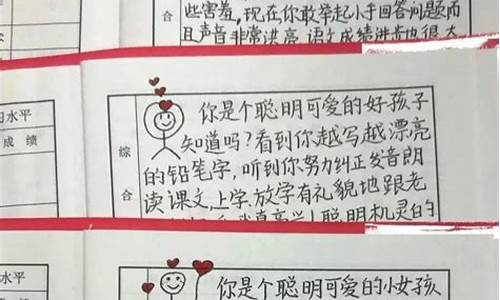 些害羞,现在你敢举起小手回答问题而
合
且声音非常洪亮.语文成绩进步也很大
水平
成绩
综
合
你是个聪明可爱的好孩子
知道吗?看到你越写越漂亮
的铅笔字,听到你努力纠正发音朗
读课文,上学.放学有礼貌地跟老
聪明机灵的
水平
你是个聪明可爱的小女孩